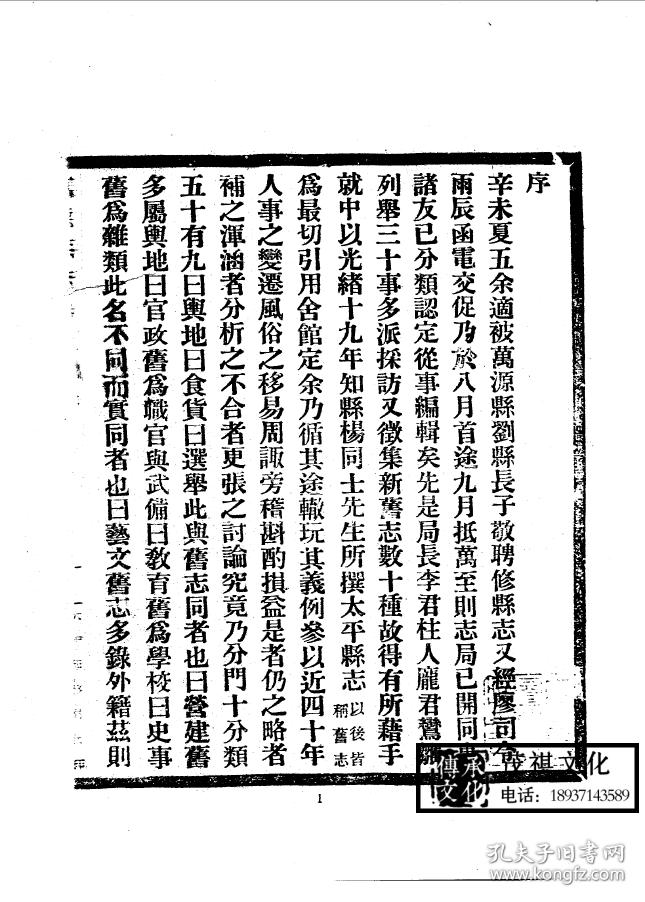 序
辛未夏五余適被萬源縣劉縣長子敬聘修縣志又經廖司令
雨辰函電交促乃於八月首途九月抵萬至則志局已開同
諸友已分類認定從事編輯矣先是局長李君柱人龐君鷟
列舉三十事多派採訪又徵集新舊志數十種故得有所藉手
就中以光緒十九年知縣楊同士先生所撰太平縣志以後皆稱舊志
爲最切引用舍館定余乃循其途轍玩其義例參以近四十年
人事之變遷風俗之移易周諏旁稽斟酌損益是者仍之略者
補之渾涵者分析之不合者更張之討論究竟乃分門十分類
五十有九曰輿地曰食貨曰選舉此與舊志同者也曰營建舊
多屬輿地曰官政舊爲職官與武備曰敎育舊爲學校曰史事
舊爲雜類此名不同而實同者也曰藝文舊志多錄外籍茲則
1
傳承文化
茂祺文化
电话：18937143589
孔夫子旧书网
kongfz.com